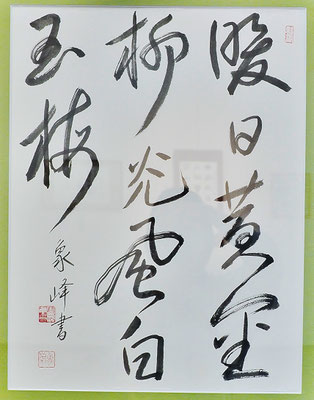 暖日黄金
柳光風白
玉梅
象峰書